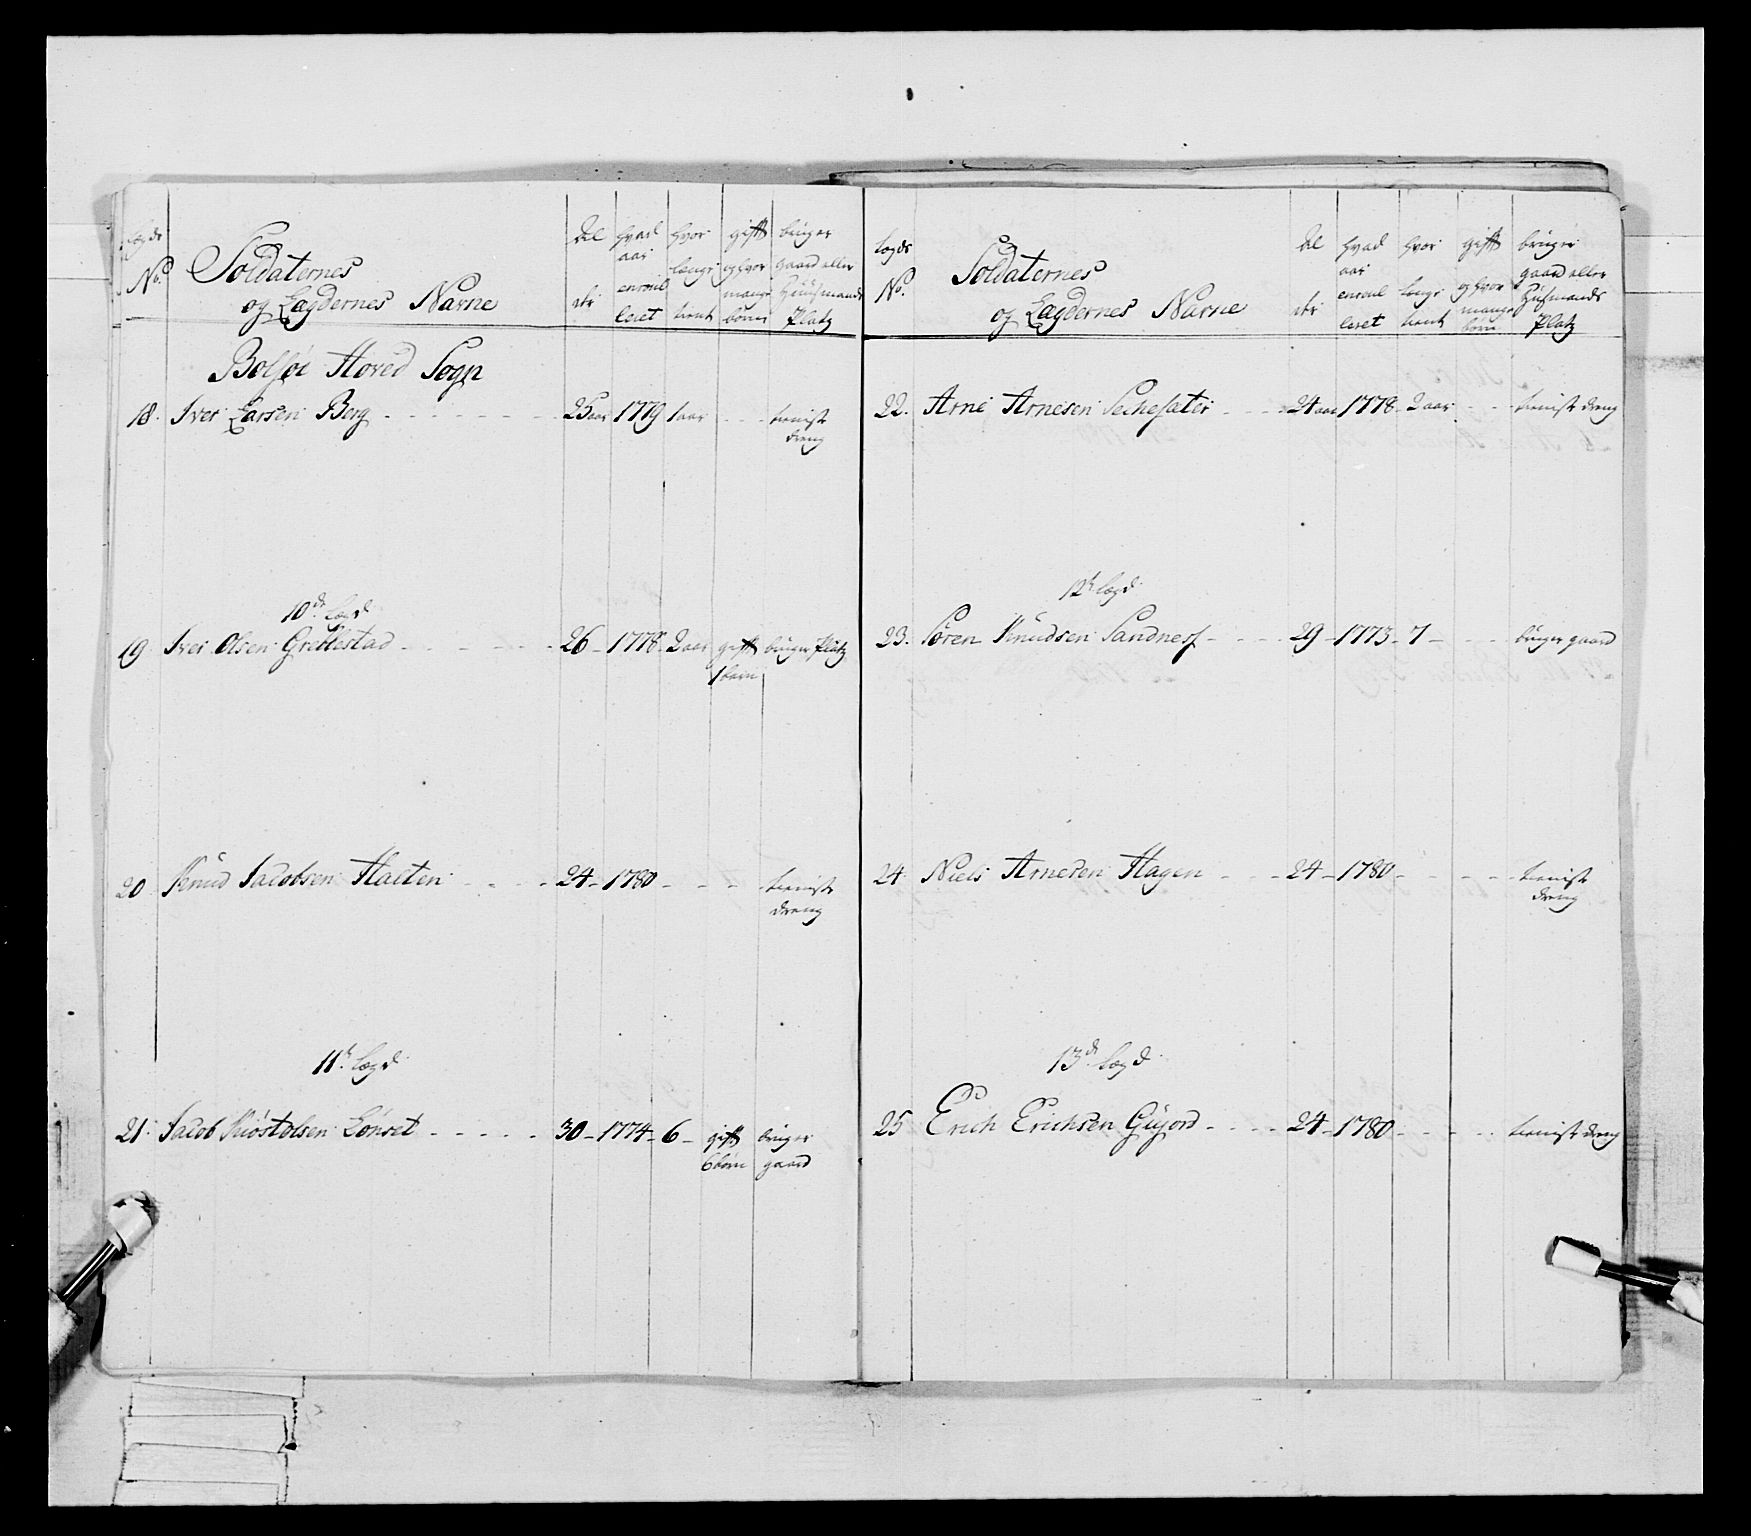 Lægds No.
Soldaternes
og Lægdernes Navne
Al der
hvad aar enroul leret
hvor længe tient
gift og hvor mange børn
bruger gaard eller Huusmands Platz
Bolsøe Hoved Sogn
18. Iver Larsen Berg 25 aar 1779 1 aar tieniste dreng
10de lægd
19. Iver Olsen Grettestad 26 1778 2 aar gift 1 barn bruger Platz
20. Knud Jacobsen Halten 24 1780 tieniste dreng
11te lægd
21. Jacob Lønset 30 1774 6 gift 6 børn bruger gaard
Lægds No.
Soldaternes
og Lægdernes Navne
Al der
hvad aar enroul leret
hvor længe tient
gift og hvor mange børn
bruger gaard eller Huusmands Platz
22. Arne Arnesen 24 aar 1778 2 aar tieniste dreng
12te lægd
23. Søren Knudsen Sandness 29 1773 7 bruger gaard
24 Niels Arnesen Hagen 24 1780 tieniste dreng
13de lægd
25 Erich Erichsen Gujord 24 1780 tieniste dreng